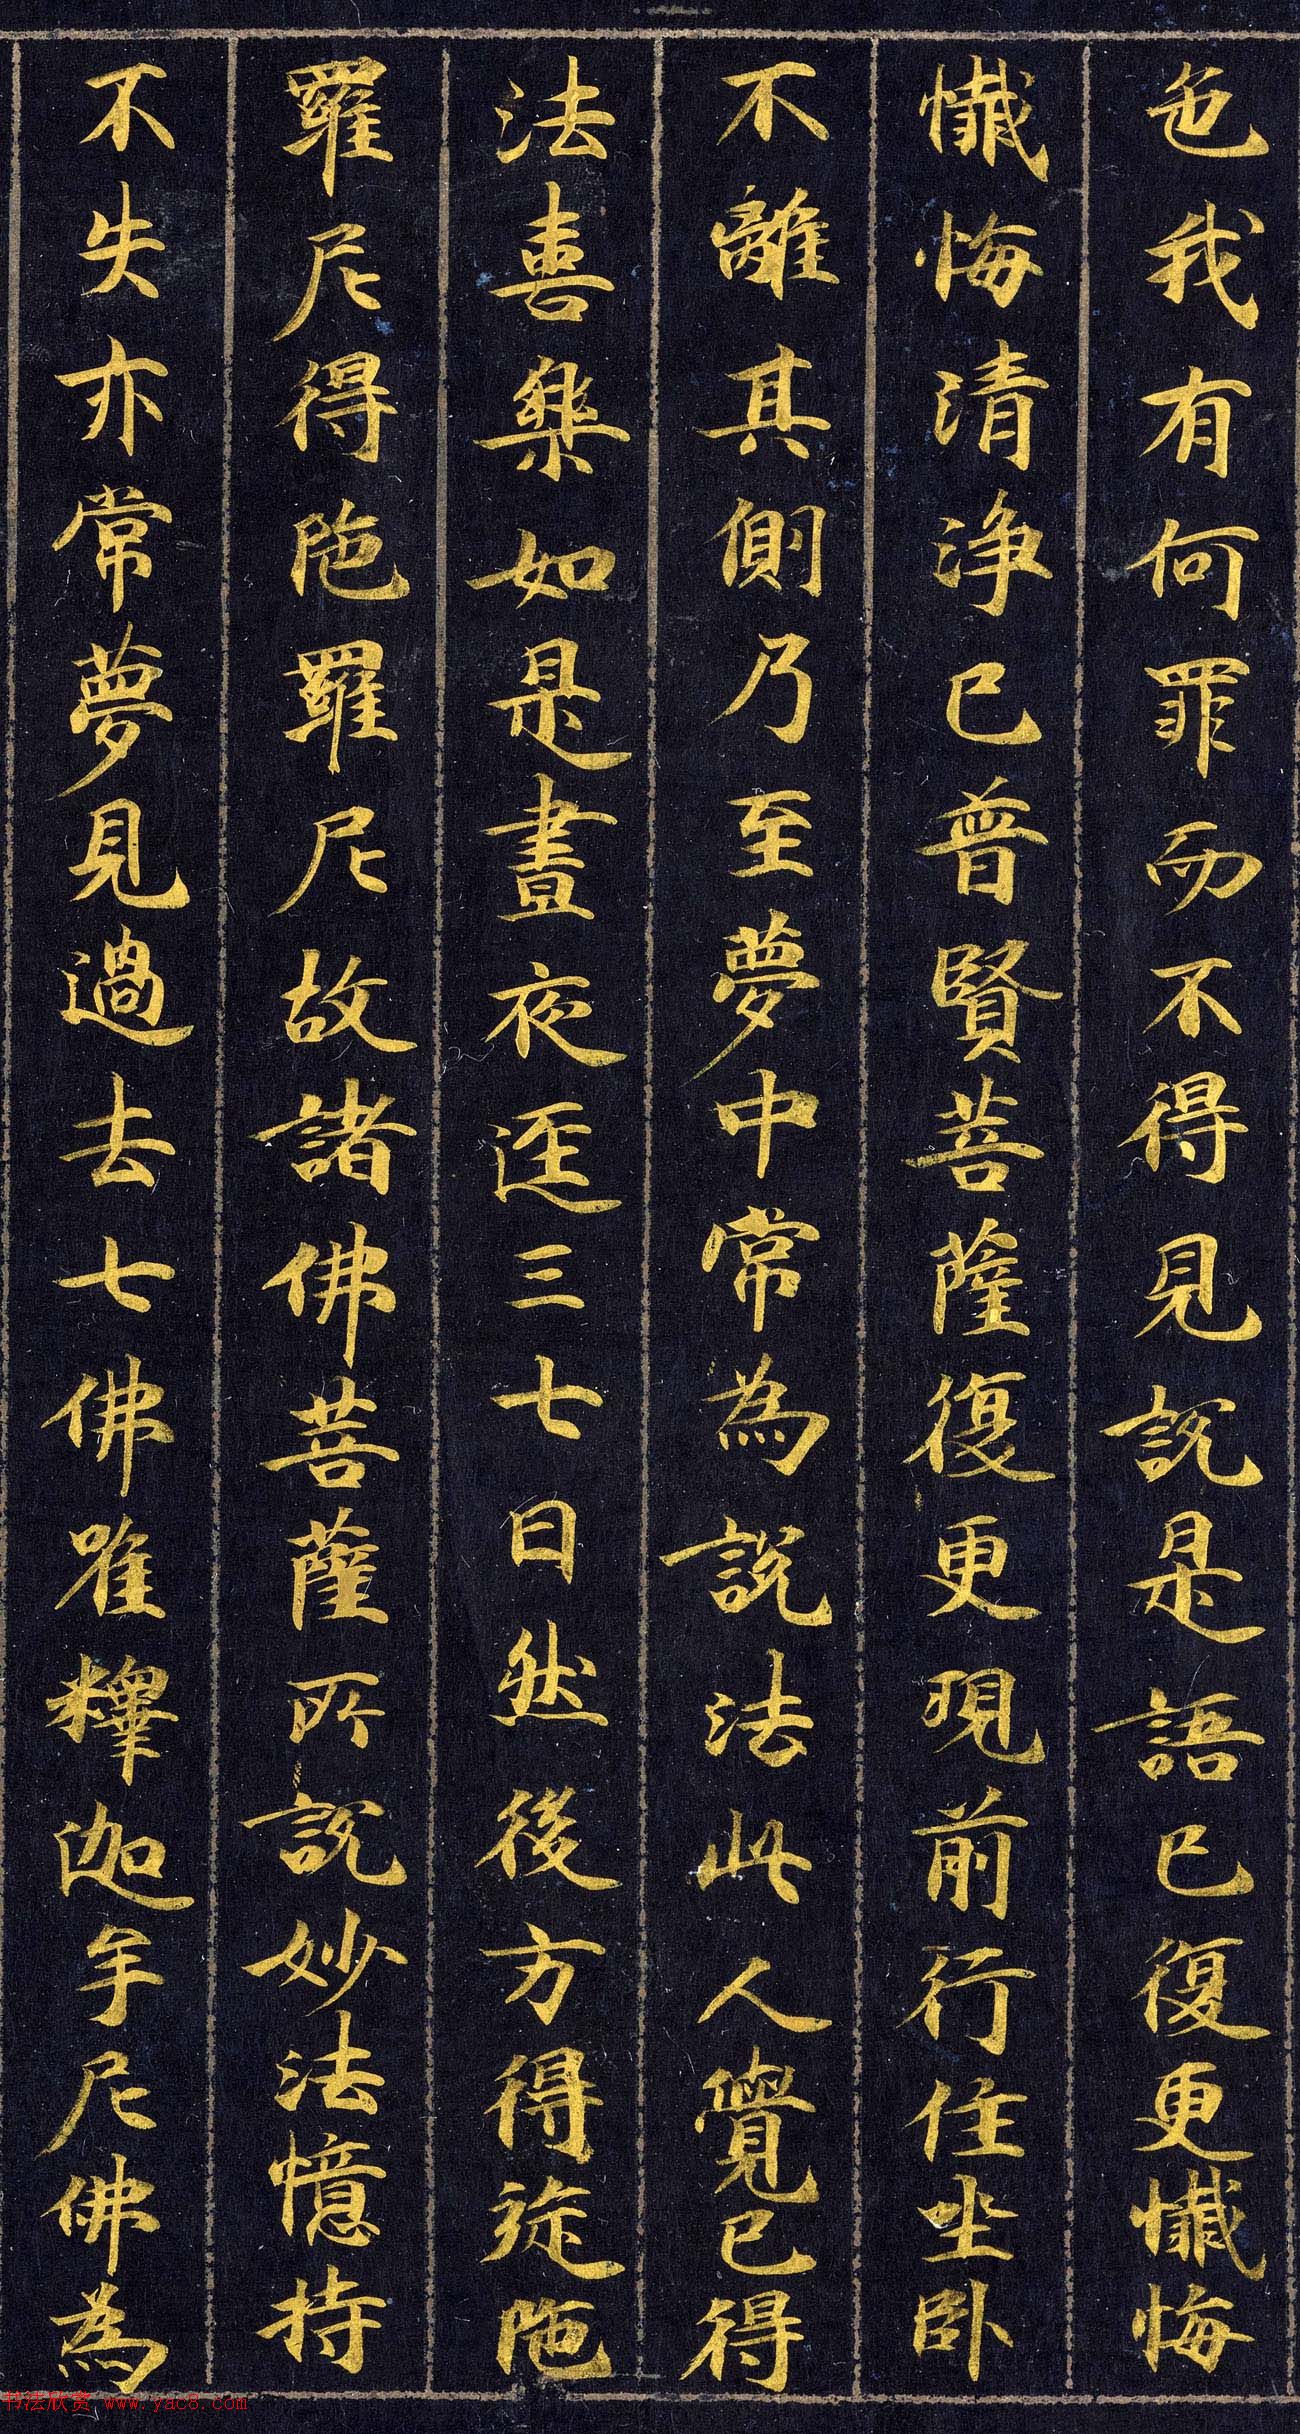 色我有何罪而不得見說是語已復更懺悔
懺悔清淨已普賢菩薩復更現前行住坐卧
不離其側乃至夢中常為說法此人覺已得
法喜樂如是晝夜逕三七日然後方得旋陁
羅尼得陁羅尼故諸佛菩薩所說妙法憶持
不失亦常夢見過去七佛唯釋迦牟尼佛為
书法欣赏 www.yac8.com